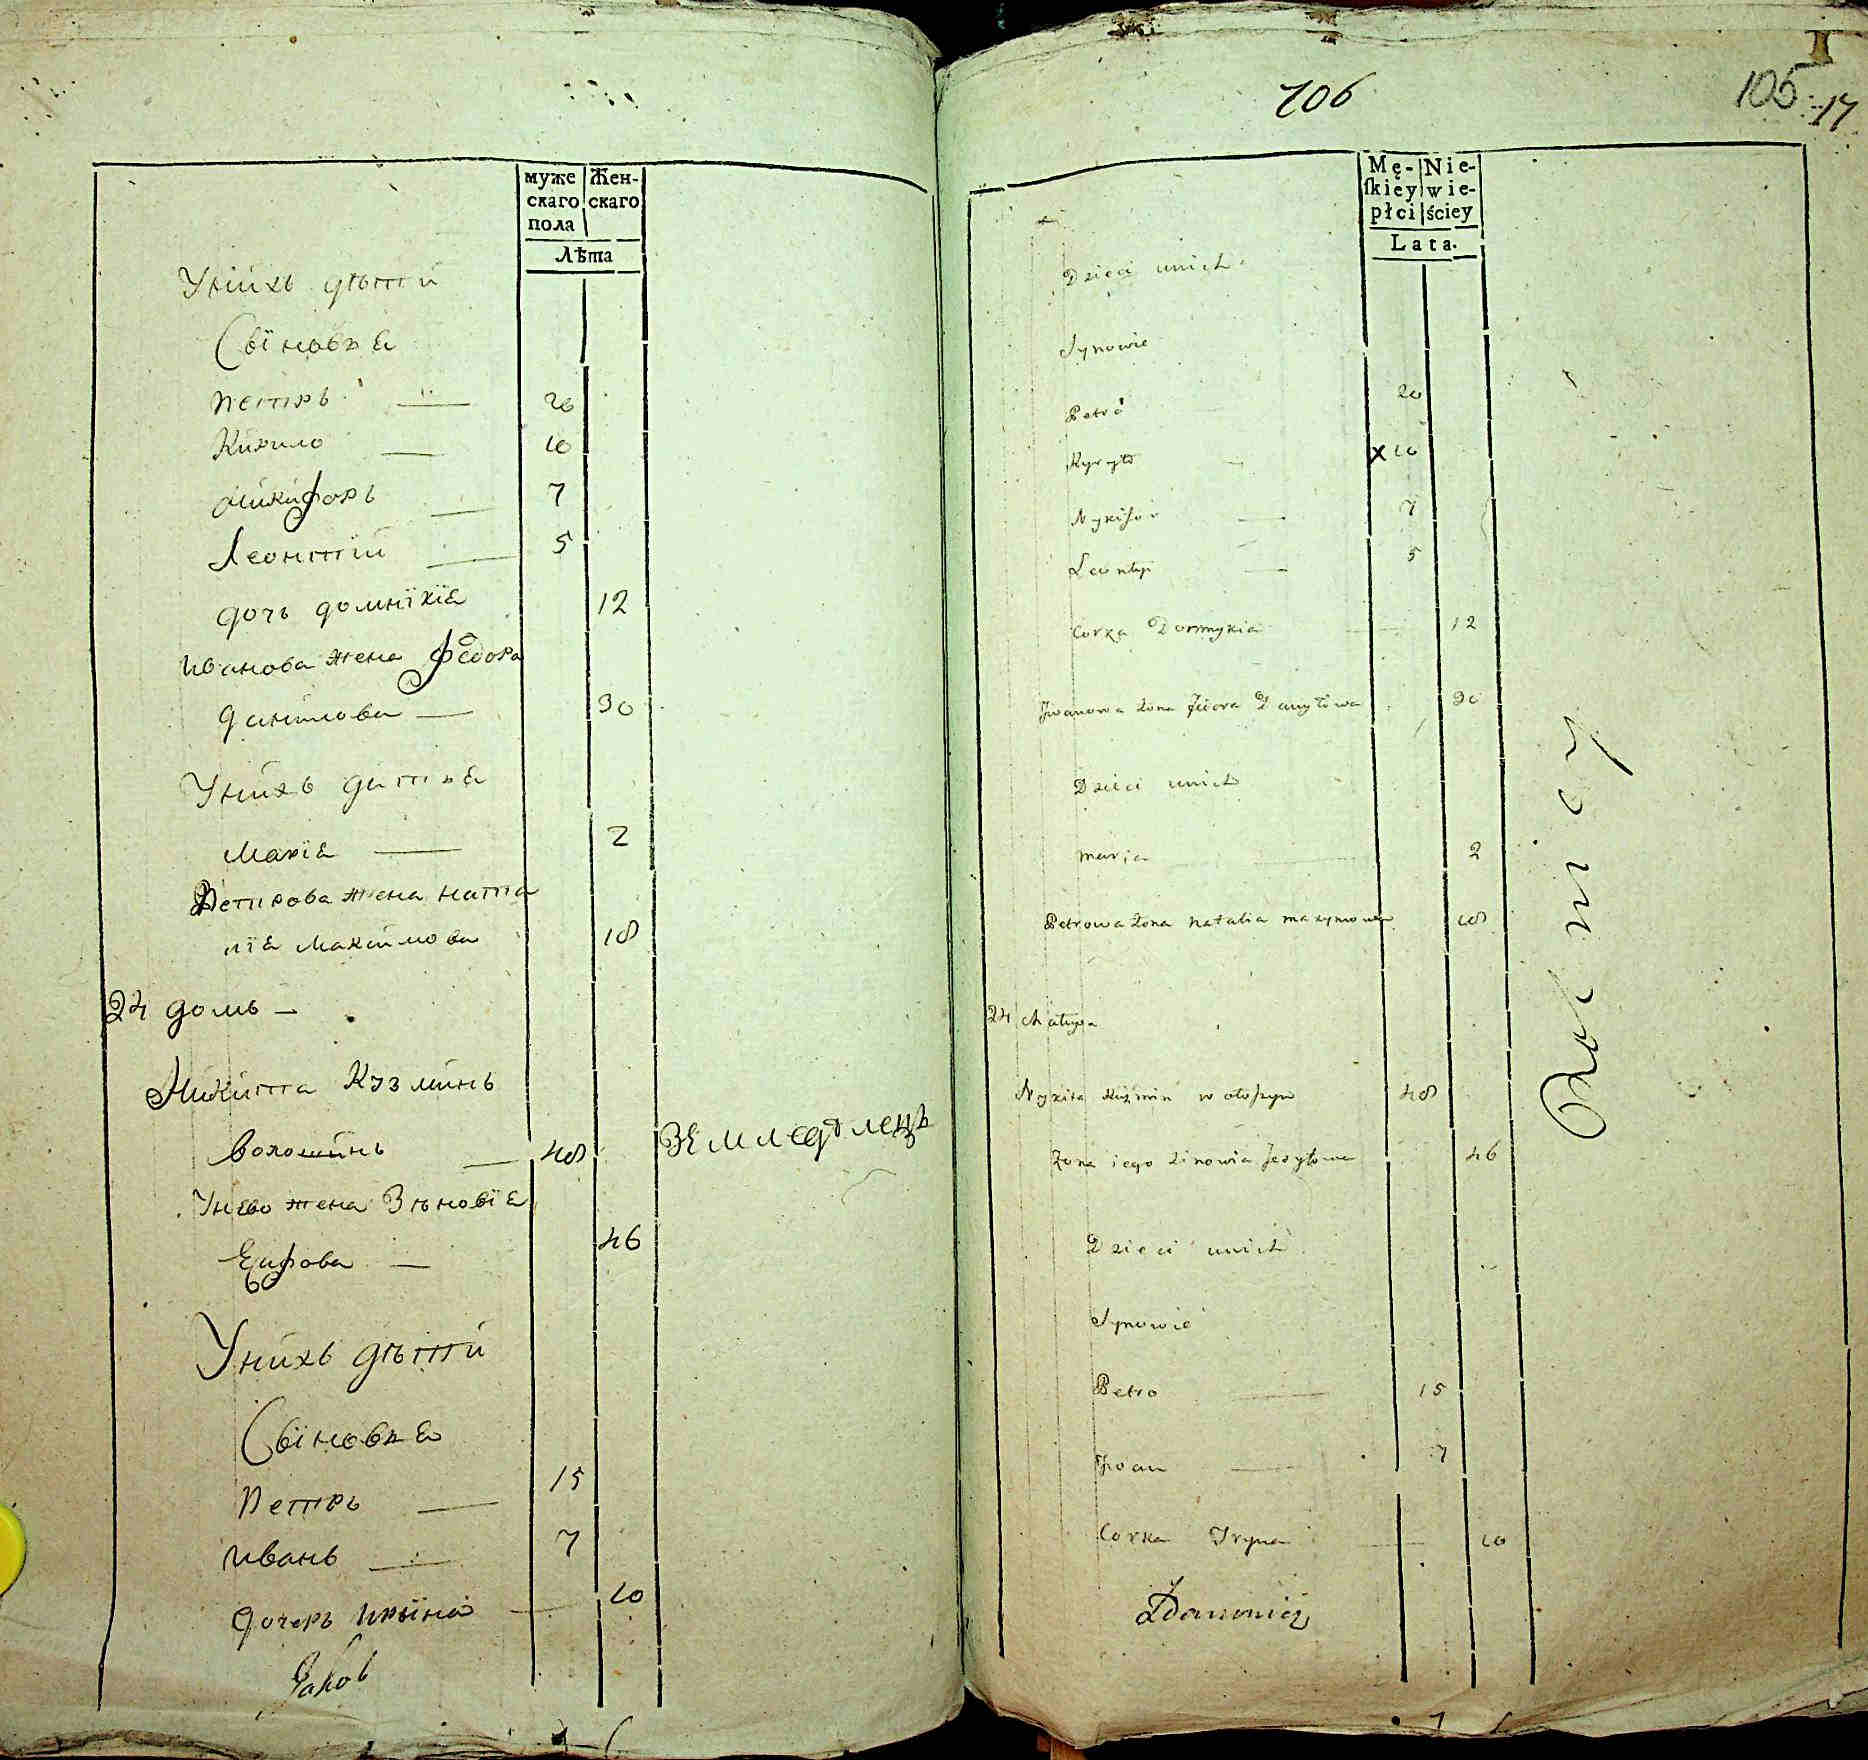 муже
скаго
пола
Жен-
скаго
Лѣта
Унихъ дѣти
Сыновя
Петръ — 20
Кирило — 10
Микифоръ — 7
Леонтій — 5
дочь домникія 12
Иванова жена Федора
данилова — 30
Унихъ дити
Марія — 2
Петрова жена ната
лія Максимова 18
24 домъ —
Микита Кузминъ
волошинъ — 48 Земледѣлецъ
Унево жена Зѣновія
Ефова — 46
Унихъ дѣти
Сыновя
Петръ — 15
иванъ — 7
дочерь Ирина — 10
Jakob
106
105 17
Mę-
ſkiey
płci
Nie-
wie-
ściey
Lata.
Dzieci unich
Synowie
Petro 20
Kyryło x 10
Nykifor — 7
Leontyi — 5
Corka Domnykia — 12
Iwanowa żona Fedora Danyłowa 30
Dzieci unich
Maria 2
Petrowa żona Natalia Maxymowa 18
24 Chałupa
Nykita Kuźmin wołoszyn 48
Żona iego Zinowia 46
Dzieci unich
Synowie
Petro — 15
Iwan — 7
Corka Iryna — 10
Rolnicy
Zdanowicz